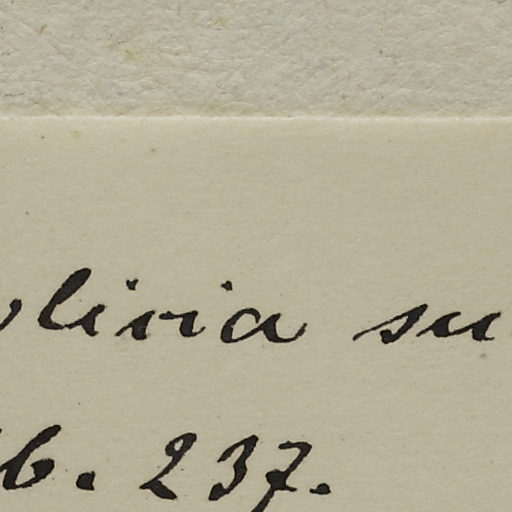 olivia su
b. 237.